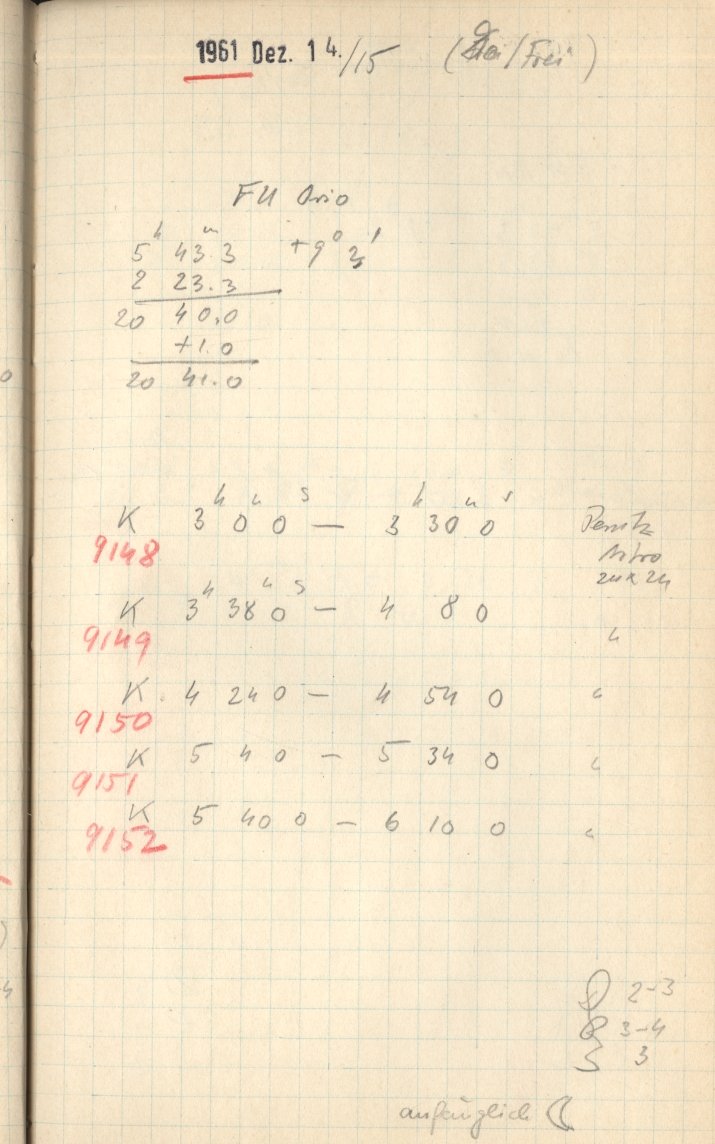 1961 Dez. 14./15 ( /Frei)
FU Orio
5h 43m.3 +9° 3'
2 23.3
20 40.0
+1.0
20 41.0
K 3h 0m 0s — 3h 30m 0s Perutz
9148 Astro
24x24
K 3h 38m 0s — 4 8 0 "
9149
K 4 24 0 — 4 54 0 "
9150
K 5 4 0 — 5 34 0 "
9151
K 5 40 0 — 6 10 0 "
9152
D 2-3
R 3-4
S 3
anfänglich ☾